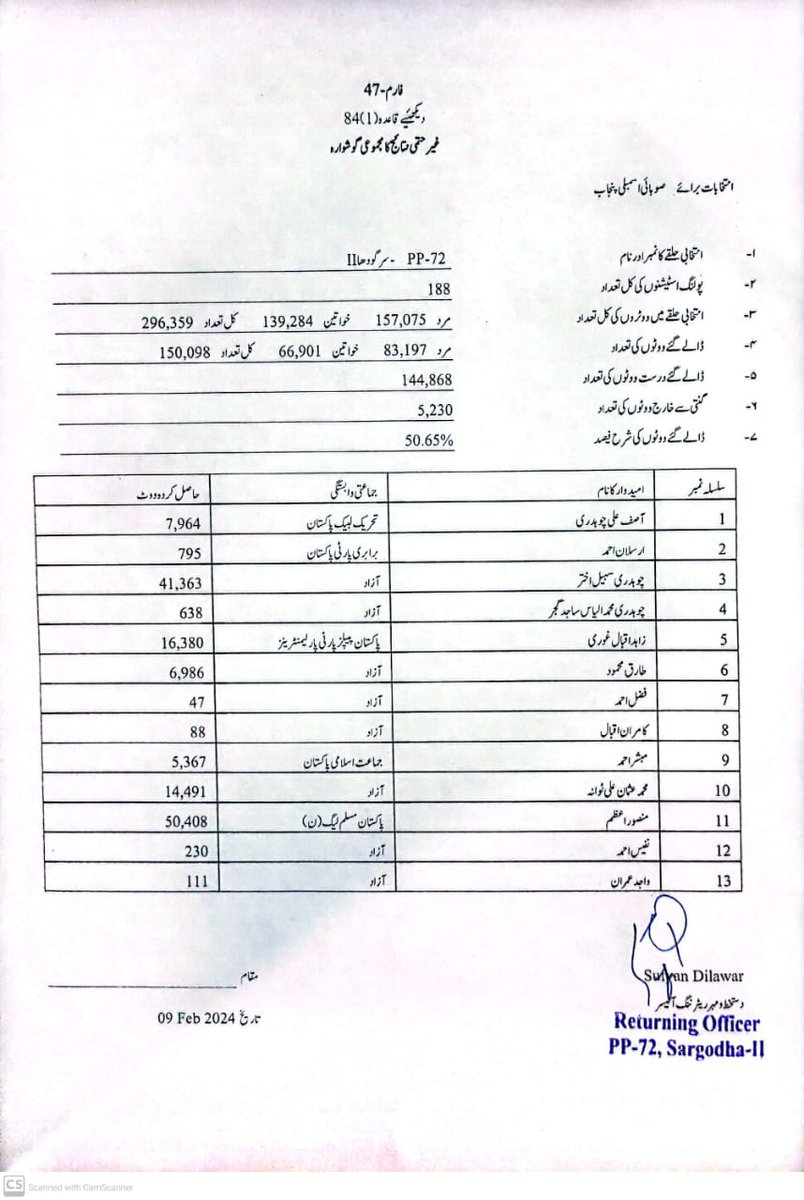 فارم-47
دیکھئیے قاعدہ(1)84
غیر حتمی نتائج کا مجموعی گوشوارہ
انتخابات برائے صوبائی اسمبلی پنجاب
۱- انتخابی حلقے کا نمبر اور نام PP-72 - سرگودھاII
۲- پولنگ اسٹیشنوں کی کل تعداد 188
۳- انتخابی حلقے میں ووٹروں کی کل تعداد مرد 157,075 خواتین 139,284 کل تعداد 296,359
۴- ڈالے گئے ووٹوں کی تعداد مرد 83,197 خواتین 66,901 کل تعداد 150,098
۵- ڈالے گئے درست ووٹوں کی تعداد 144,868
۶- گنتی سے خارج ووٹوں کی تعداد 5,230
۷- ڈالے گئے ووٹوں کی شرح فیصد 50.65%
سلسلہ نمبر امیدوار کا نام جماعتی وابستگی حاصل کردہ ووٹ
1 آصف علی چوہدری تحریک لبیک پاکستان 7,964
2 ارسلان احمد برابری پارٹی پاکستان 795
3 چوہدری سہیل اختر آزاد 41,363
4 چوہدری محمد الیاس ساجد گجر آزاد 638
5 زاہد اقبال غوری پاکستان پیپلز پارٹی پارلیمنٹرینز 16,380
6 طارق محمود آزاد 6,986
7 فضل احمد آزاد 47
8 کامران اقبال آزاد 88
9 مبشر احمد جماعت اسلامی پاکستان 5,367
10 محمد عثمان علی ٹوانہ آزاد 14,491
11 منصور اعظم پاکستان مسلم لیگ(ن) 50,408
12 نفیس احمد آزاد 230
13 واجد عمران آزاد 111
Sufyan Dilawar
دستخط و مہر ریٹرننگ آفیسر
Returning Officer
PP-72, Sargodha-II
مقام
تاریخ 09 Feb 2024
CS Scanned with CamScanner